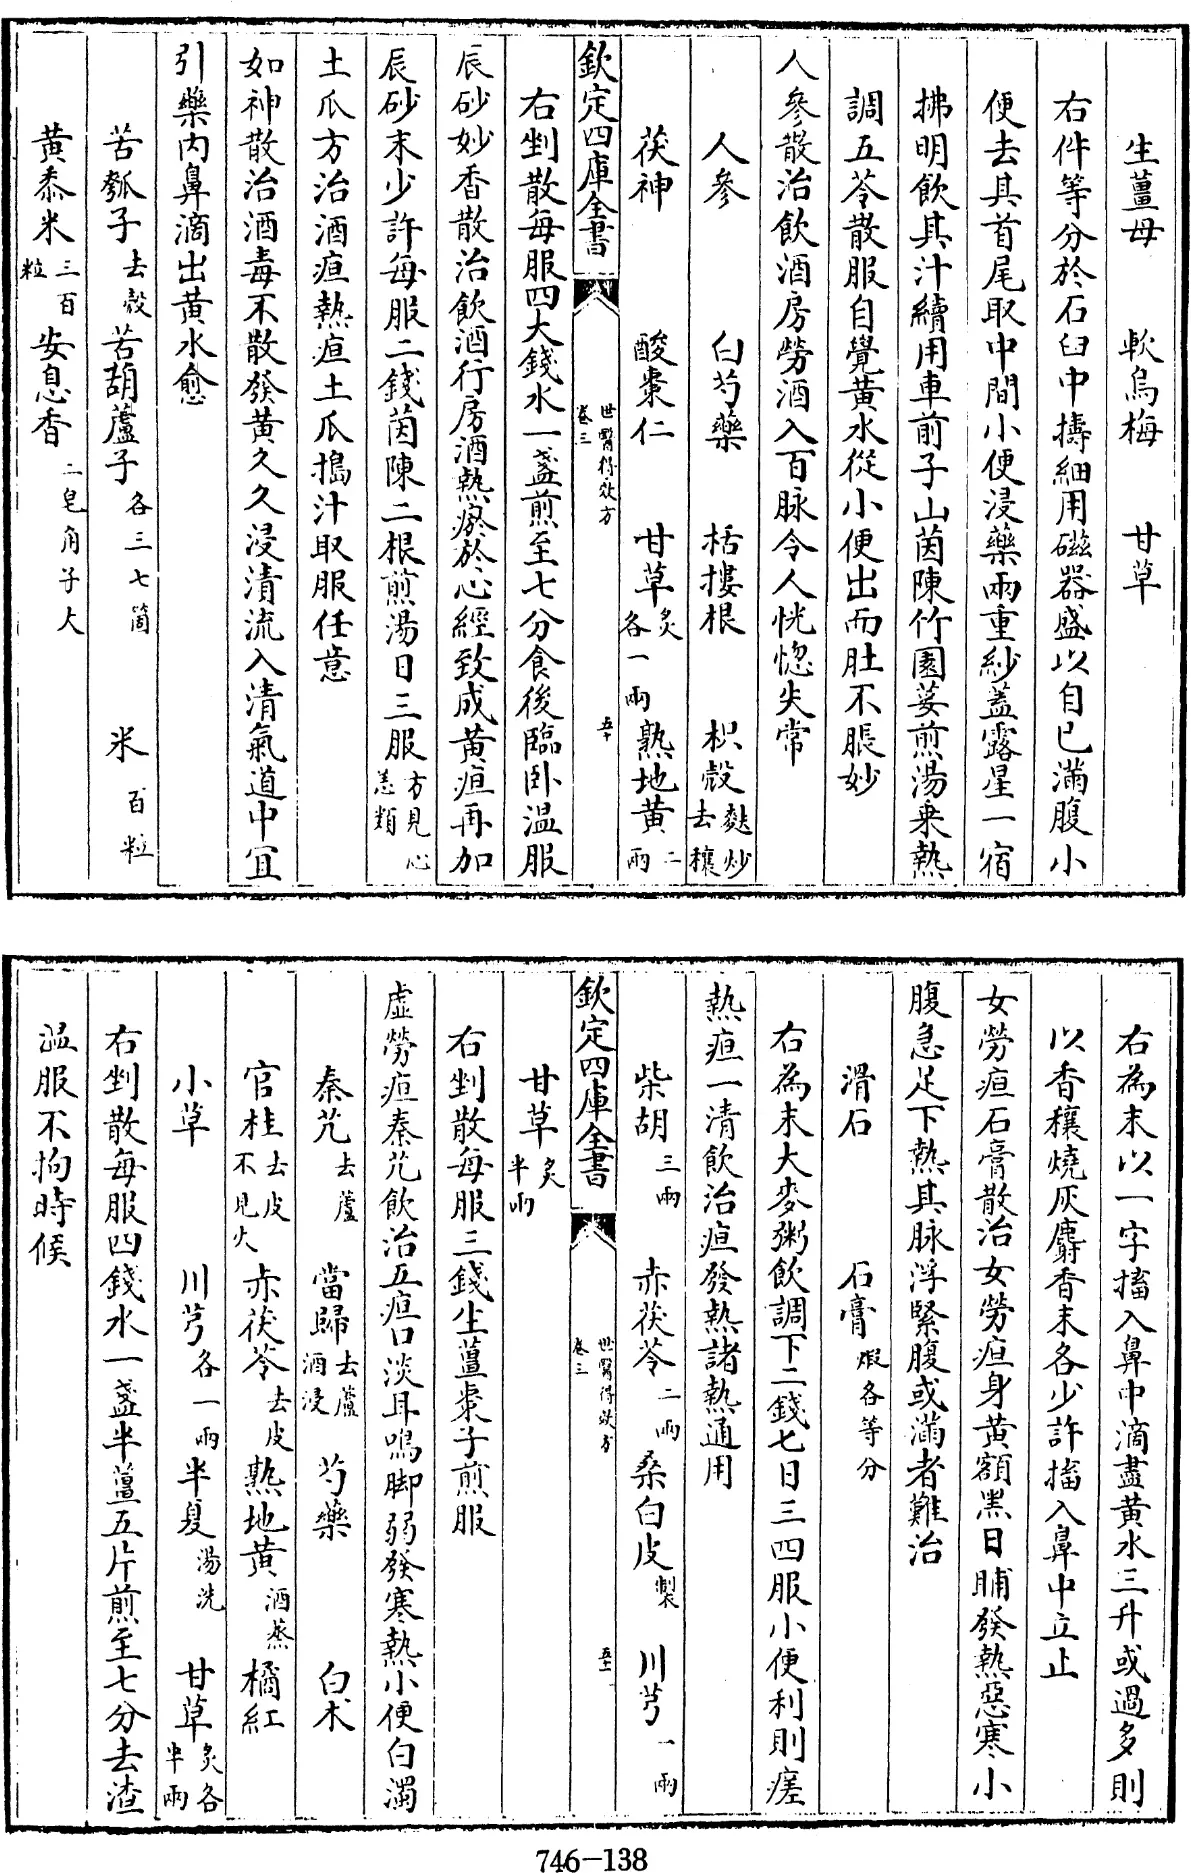 生薑母　軟烏梅　甘草
右件等分於石臼中擣細用磁器盛以自己滿腹小
便去其首尾取中間小便浸藥兩重紗蓋露星一宿
拂明飲其汁續用車前子山茵陳竹園荽煎湯乗熱
調五苓散服自覺黄水從小便出而肚不脹妙
人參散治飲酒房勞酒入百脉令人恍惚失常
人參　白芍藥　栝摟根　枳殻麩炒去穰
茯神　酸棗仁　甘草炙各一兩　熟地黄二兩
欽定四庫全書　世醫得效方卷三　五十
右剉散每服四大錢水一盞煎至七分食後臨卧温服
辰砂妙香散治飲酒行房酒熱瘀於心經致成黄疸再加
辰砂末少許每服二錢茵陳二根煎湯日三服方見心恙類
土瓜方治酒疸熱疸土瓜搗汁取服任意
如神散治酒毒不散發黄久久浸漬流入清氣道中宜
引藥内鼻滴出黄水愈
苦瓠子去殻　苦葫蘆子各三七箇　米百粒
黄黍米三百粒　安息香二皂角子大
右為末以一字搐入鼻中滴盡黄水三升或過多則
以香穰燒灰麝香末各少許搐入鼻中立止
女勞疸石膏散治女勞疸身黄額黑日晡發熱惡寒小
腹急足下熱其脉浮緊腹或滿者難治
滑石　石膏煅各等分
右為末大麥粥飲調下二錢七日三四服小便利則瘥
熱疸一清飲治疸發熱諸熱通用
柴胡三兩　赤茯苓二兩　桑白皮製　川芎一兩
欽定四庫全書　世醫得效方卷三　五十一
甘草炙半兩
右剉散每服三錢生薑棗子煎服
虚勞疸秦艽飲治五疸口淡耳鳴脚弱發寒熱小便白濁
秦艽去蘆　當歸去蘆酒浸　芍藥　白术
官桂去皮不見火　赤茯苓去皮　熟地黄酒蒸　橘紅
小草　川芎各一兩　半夏湯洗　甘草炙各半兩
右剉散每服四錢水一盞半薑五片煎至七分去渣
温服不拘時候
746-138